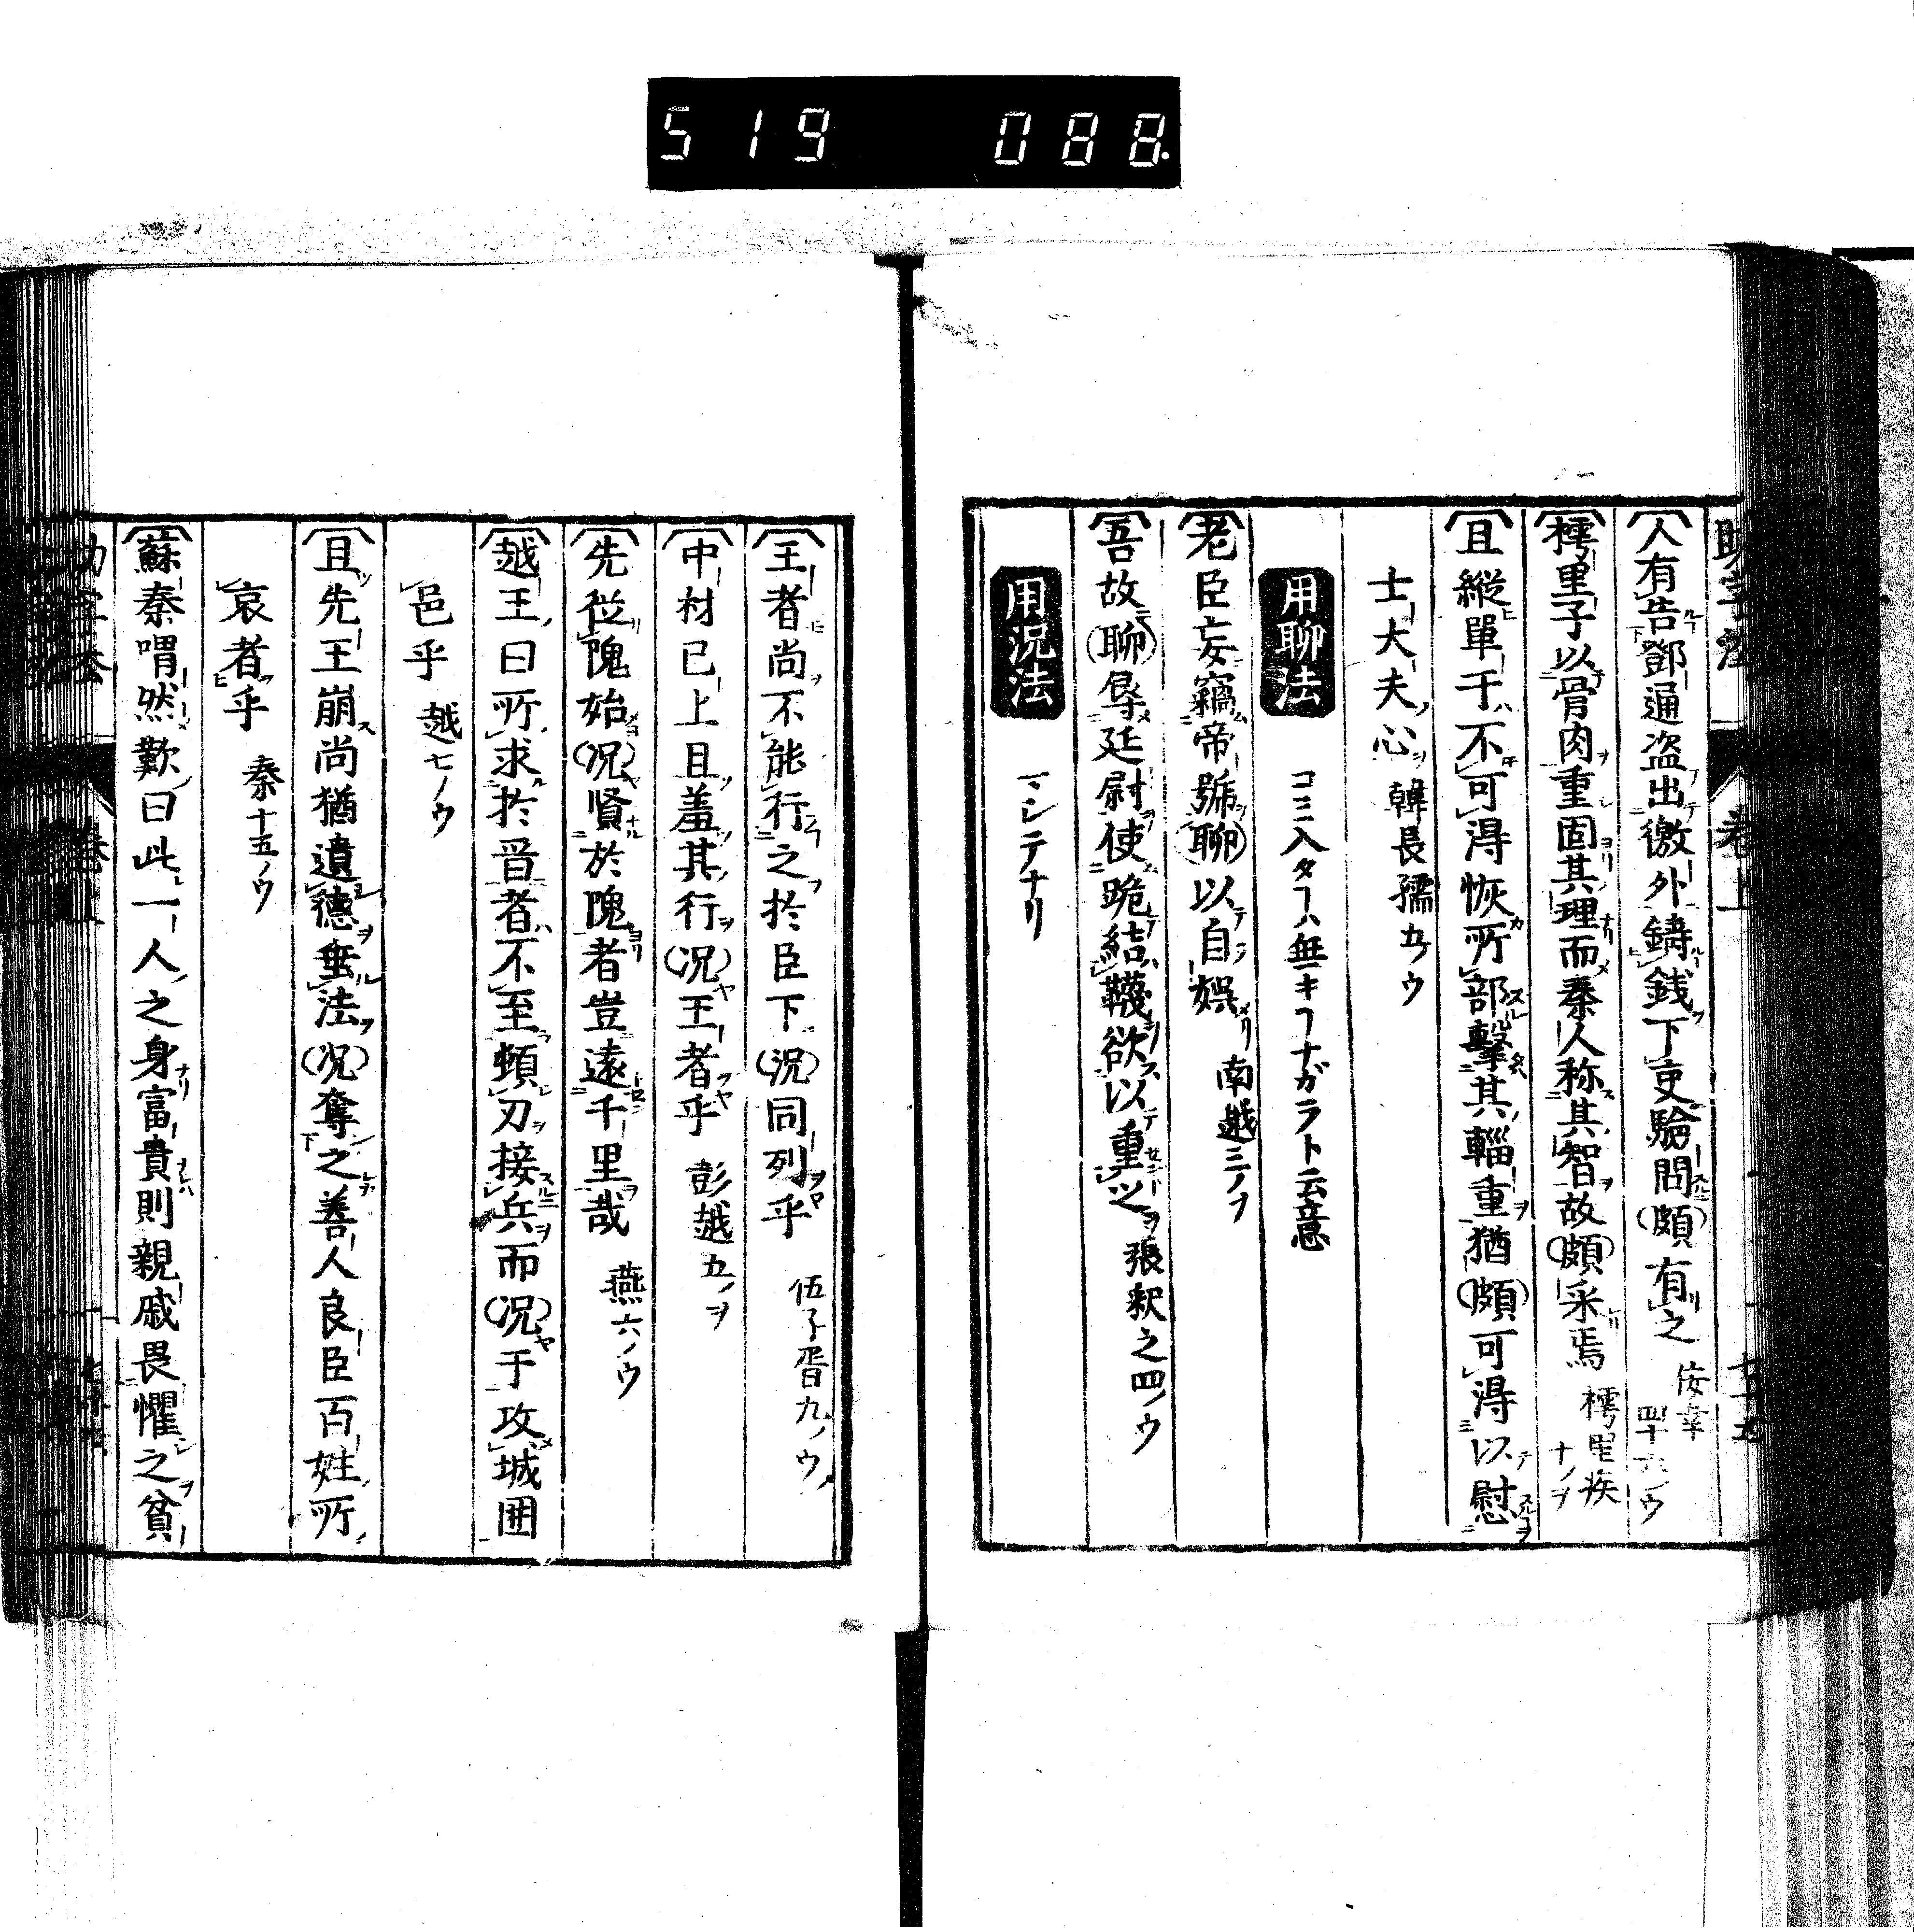 519 088.
人有告鄧通盗出徼外鑄銭下吏驗問(頗)有之 佞幸四十六ノウ
樗里子以骨肉重固其理而秦人称其智故(頗)采焉 樗里疾十ノヲ
且縦單于不可得恢所部擊其輜重猶(頗)可得以慰
士大夫心 韓長孺五ノウ
用聊法 コミ入タヿハ無キヿナガラト云意
老臣妄竊帝號(聊)以自娯 南越三ノヲ
吾故(聊)辱延尉使跪結韈欲以重之 張釈之四ノウ
用況法 マシテナリ
王者尚不能行之於臣下(況)同列乎 伍子胥九ノウ
中材已上且羞其行(況)王者乎 彭越五ノヲ
先從隗始(況)賢於隗者豈遠千里哉 燕六ノウ
越王曰所求於晋者不至頓刃接兵而(況)于攻城囲
邑乎 越七ノウ
且先王崩尚猶遺徳垂法(況)奪之善人良臣百姓所
哀者乎 秦十五ノウ
蘇秦喟然歎曰此一人之身富貴則親戚畏懼之貧